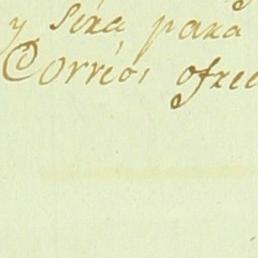 y será para
Correos ofre